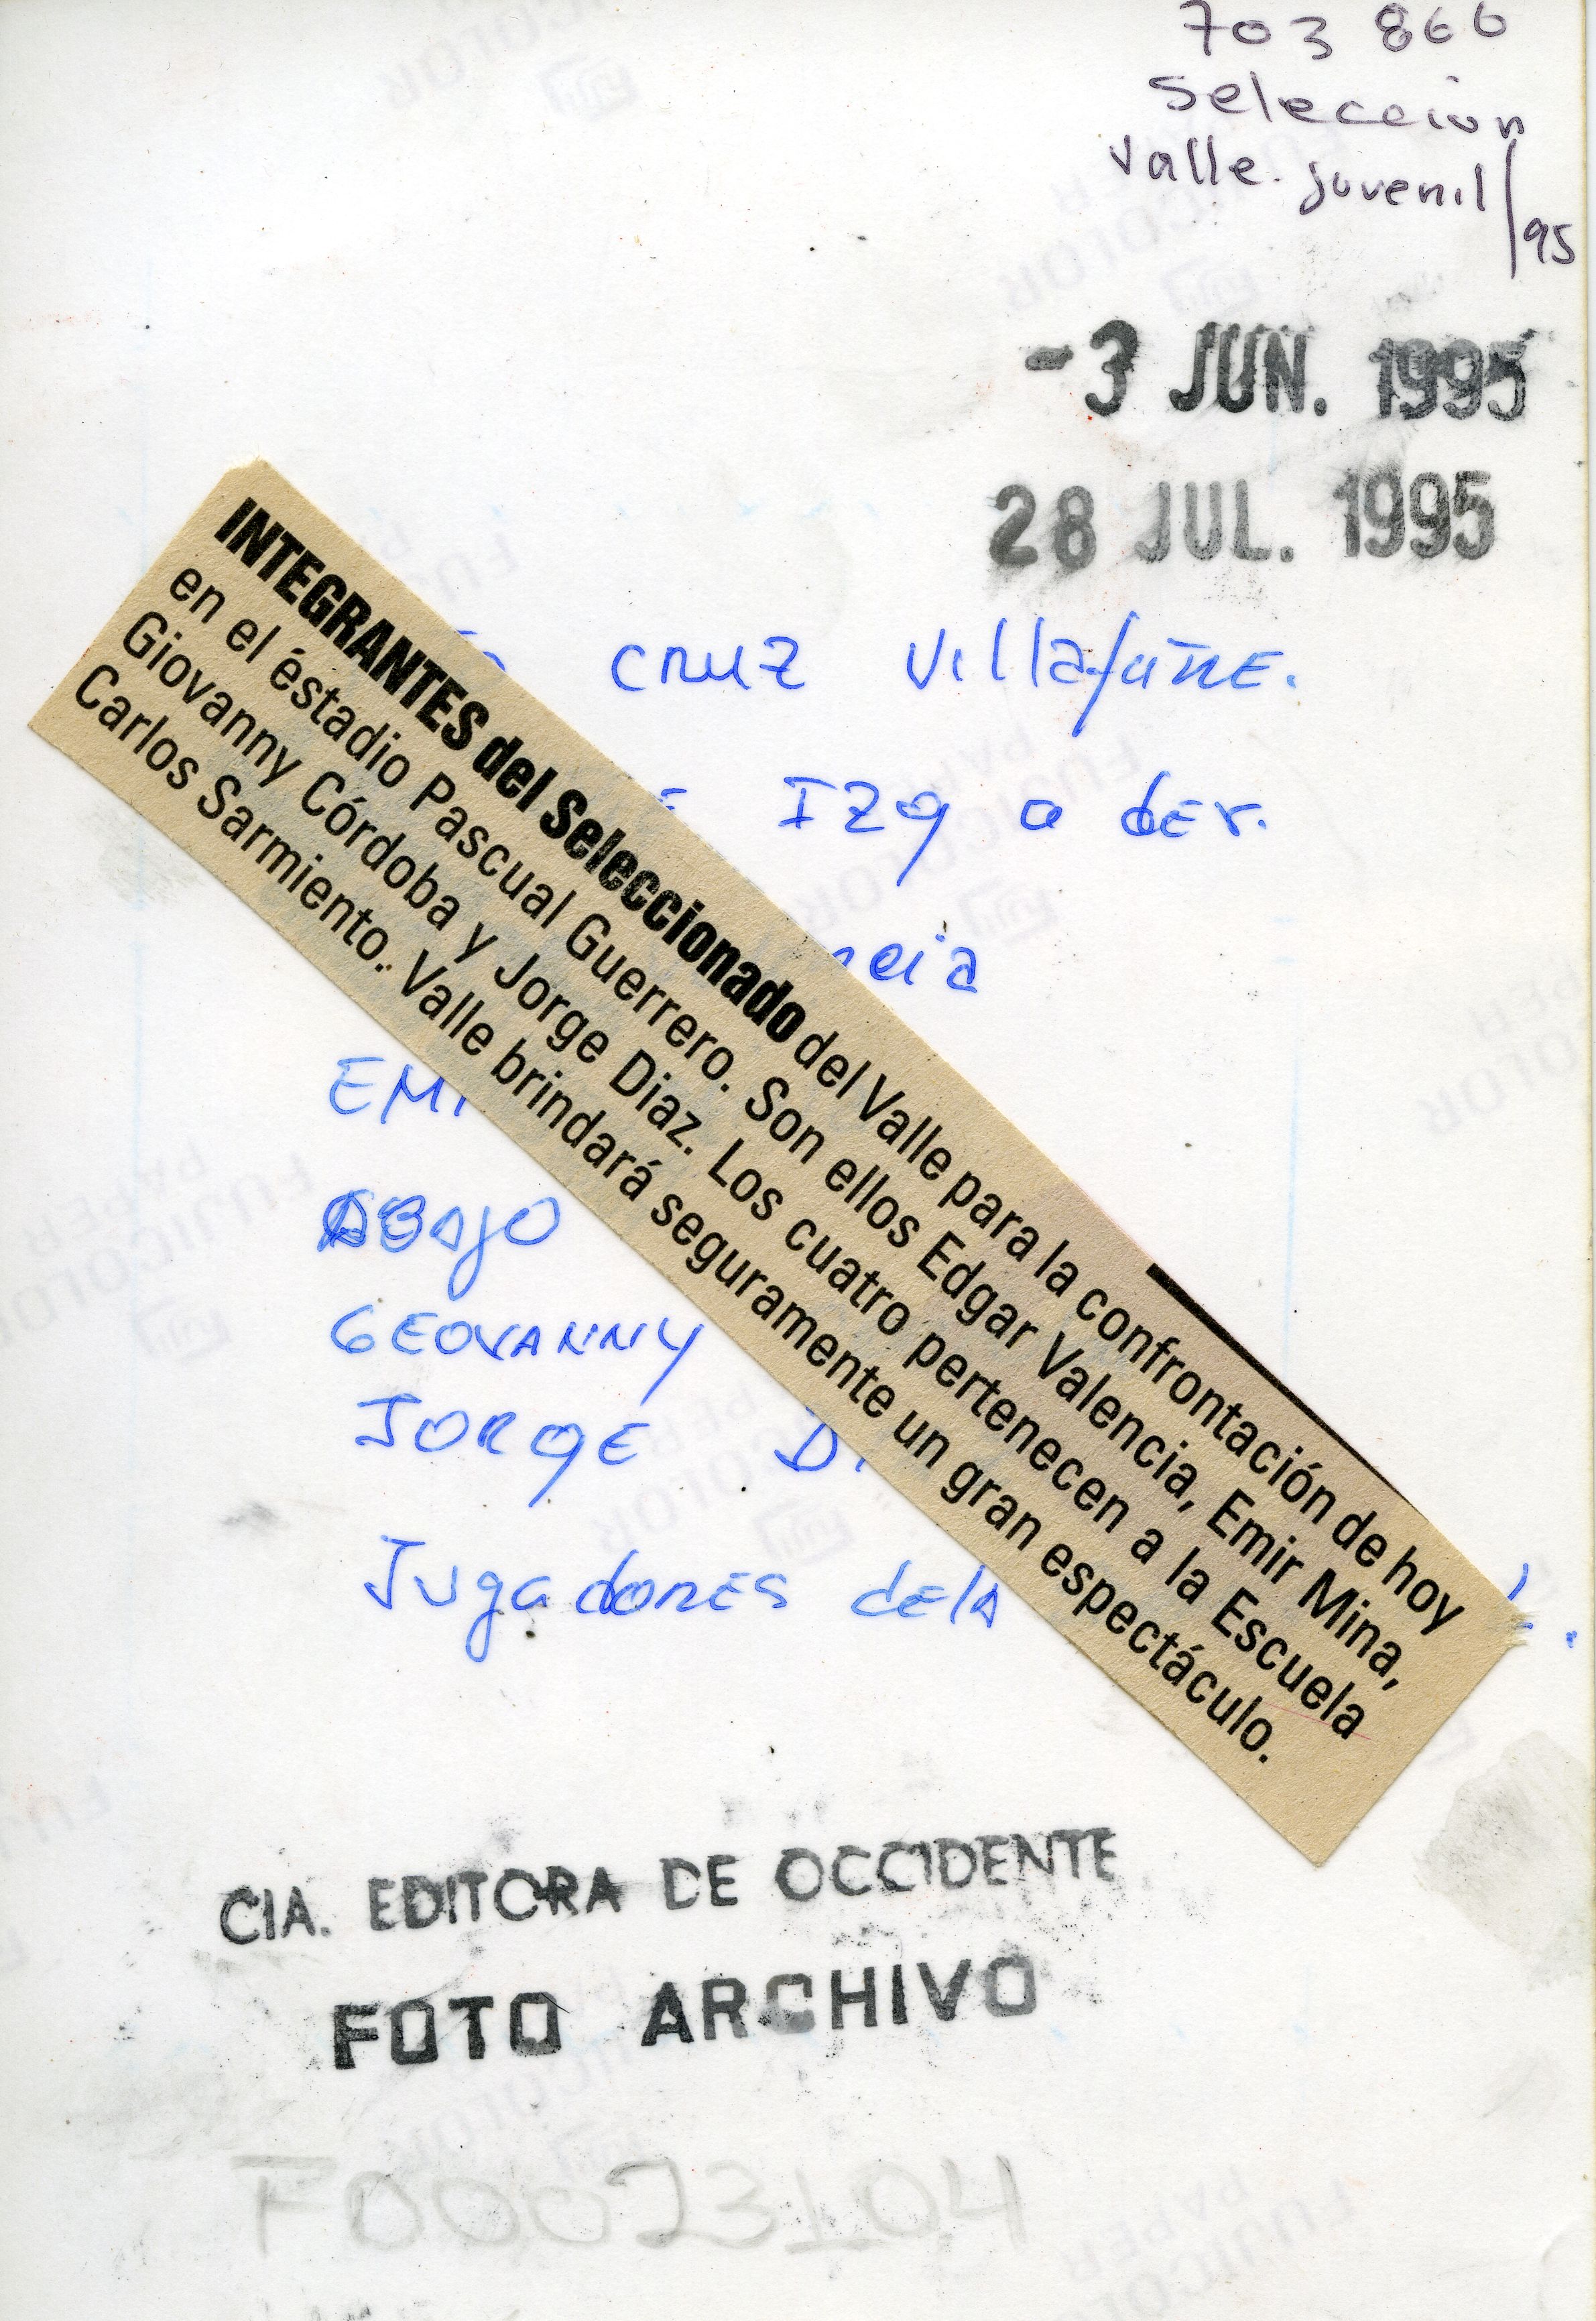 703 866
Seleccion
Valle. juvenil/95
-3 JUN. 1995
28 JUL. 1995
cruz Villafañe.
Izq a der.
INTEGRANTES del Seleccionado del Valle para la confrontación de hoy
en el éstadio Pascual Guerrero. Son ellos Edgar Valencia, Emir Mina,
Giovanny Córdoba y Jorge Diaz. Los cuatro pertenecen a la Escuela
Carlos Sarmiento. Valle brindará seguramente un gran espectáculo.
ncia
EMI
ABAJO
GEOVANNY
JORGE D
Jugadores dela
CIA. EDITORA DE OCCIDENTE
FOTO ARCHIVO
F00023104